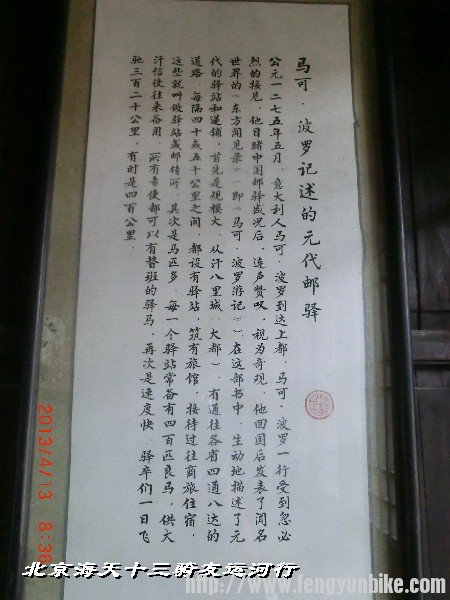 马可·波罗记述的元代邮驿
公元一二七五年五月，意大利人马可·波罗到达上都，马可·波罗一行受到忽必
烈的接见。他目睹中国邮驿盛况后，连声赞叹，视为奇观，他回国后发表了闻名
世界的《东方闻见录》（即《马可·波罗游记》），在这部书中，生动地描述了元
代的驿站和递铺，首先是规模大，从汗八里城（大都），有通往各省四通八达的
道路，每隔四十或五十公里之间，都设有驿站，筑有旅馆，接待过往商旅住宿，
这些就叫做驿站或邮传所，其次是马匹多，每一个驿站常备有四百匹良马，供大
汗信使往来备用，所有专使都可以有替班的驿马，再次是速度快，驿卒们一日飞
驰三百二十公里，有时是四百公里。
2013/4/13 8:36
北京海天十三骑友运河行
http://www.fengyunbike.com